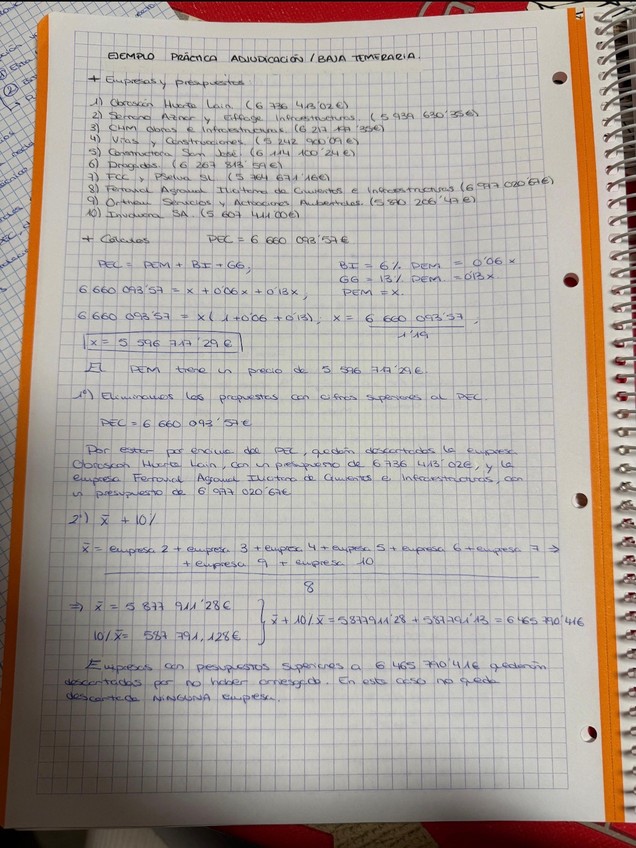 EJEMPLO PRÁCTICA ADJUDICACIÓN / BAJA TEMERARIA.
+ Empresas y presupuestos:
1) Obrascón Huarte Lain (6 736 413'02€)
2) Serrano Aznar y Eiffage Infraestructuras. (5 939 630'35€)
3) CHM obras e Infraestructuras (6 217 479'35€)
4) Vías y Construcciones (5 242 900'09€)
5) Constructora San José (6 114 100'24€)
6) Dragados. (6 267 813'59€)
7) FCC y PSelva SL (5 764 671'16€)
8) Ferrovial Agroman Ilicitana de Cimientos e Infraestructuras (6 977 020'67€)
9) Orthem Servicios y Actuaciones Ambientales (5 870 206'47€)
10) Involucra SA. (5 607 411'00€)
+ Cálculos PEC = 6 660 093'57€
PEC = PEM + BI + GG, BI = 6% PEM = 0'06x
GG = 13% PEM = 0'13x
6 660 093'57 = x + 0'06x + 0'13x, PEM = x.
6 660 093'57 = x (1+0'06 + 0'13), x = 6 660 093'57 ,
1'19
x = 5 596 717'29€
El PEM tiene un precio de 5 596 717'29€.
1º) Eliminamos las propuestas con cifras superiores al PEC.
PEC = 6 660 093'57€
Por estar por encima del PEC, quedan descartadas la empresa
Obrascon Huarte Lain, con un presupuesto de 6 736 413'02€, y la
empresa Ferrovial Agroman Ilicitana de Cimientos e Infraestructuras, con
un presupuesto de 6'977 020'67€
2º) x̄ + 10%
x̄ = empresa 2 + empresa 3 + empresa 4 + empresa 5 + empresa 6 + empresa 7 ⇒
+ empresa 9 + empresa 10
8
⇒ x̄ = 5 877 911'28€
x̄ + 10% x̄ = 5877911'28 + 587791'13 = 6 465 790'41€
10% x̄ = 587 791,128€
Empresas con presupuestos superiores a 6 465 790'41€ quedarán
descartadas por no haber arriesgado. En este caso no queda
descartada NINGUNA empresa.